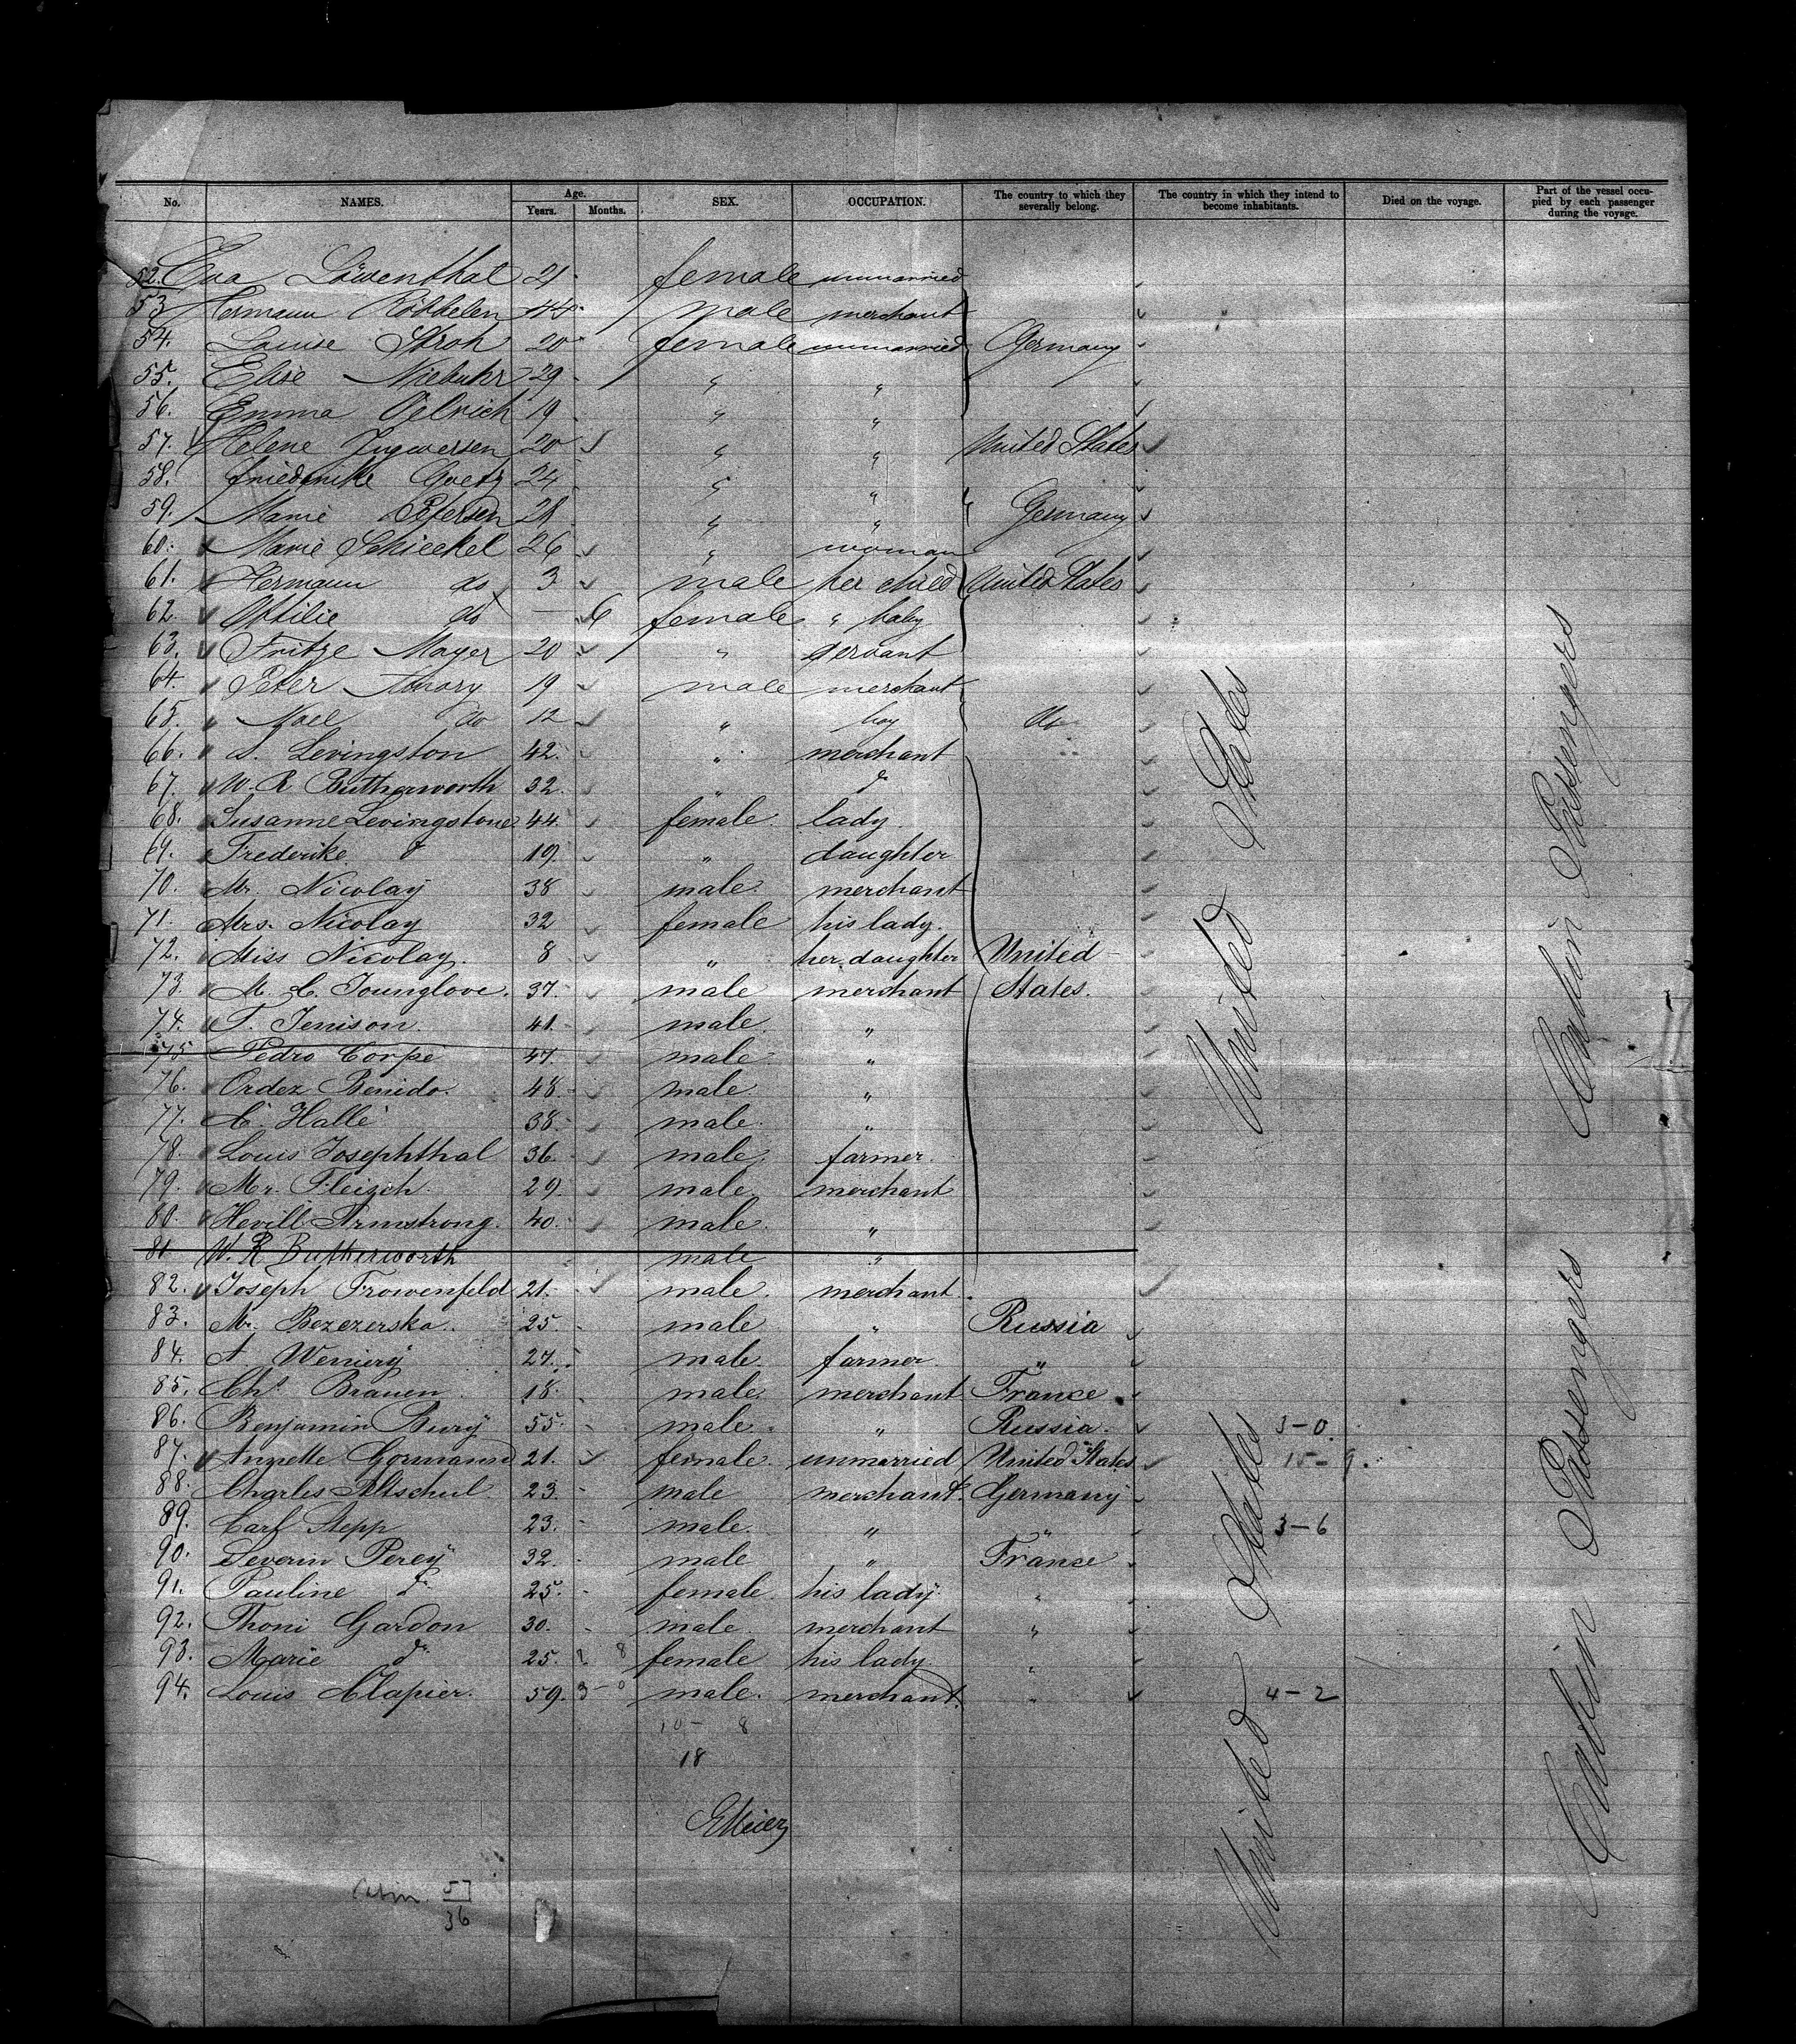 No. NAMES. Age. Years. Months. SEX. OCCUPATION. The country to which they severally belong. The country in which they intend to become inhabitants. Died on the voyage. Part of the vessel occupied by each passenger during the voyage.
52. Eva Löwenthal 21 female unmarried
53 Hermann Röbbelen 44 male merchant
54. Louise Stroh 20 female unmarried Germany
55. Elise Niebuhr 29 " "
56. Emma Oelrich 19 " "
57. Helene Ingwersen 20 " " United States
58. Friederike Goetz 24 " "
59. Marie Petersen 28 " " Germany
60. Marie Schieckel 26 " woman
61. Hermann do 3 male her child United States
62. Ottilie do — 6 female " baby
63. Fritze Mayer 20 " servant
64. Peter 19 male merchant
65. Noel do 12 " boy do
66. S. Levingston 42 " merchant
67. W. R. Butherworth 32. " do
68. Susanne Levingstone 44 female. lady.
69. Frederike do 19. " daughter
70. Mr. Nicolay 38 male. merchant
71. Mrs. Nicolay 32 female his lady.
72. Miss Nicolay. 8 " her daughter United
73. M. C. Younglove. 37. male merchant States.
74. T. Jenison. 41. male. "
75 Pedro Corpé 47 male "
76. Ordez Benido. 48. male. "
77. C. Hallé 38. male. "
78. Louis Josephthal 36. male. farmer.
79. Mr. Fleisch. 29. male. merchant
80. Hevill Armstrong. 40. male. "
81 W. R Butherworth male "
82. Joseph Frowenfeld 21. male. merchant.
83. Mr. Bezezerska. 25. male " Russia
84. A. Weniery 27. male. farmer. "
85. Chs. Brauen 18. male. merchant France
86. Benjamin Bury 55. male. " Russia. 3-0.
87. Annette Gormann 21. female. unmarried United States 15-9.
88. Charles Altschul. 23. male merchant. Germany
89. Carl Stepp 23. male. " " 3-6
90. Severin Perey 32. male " France
91. Pauline do 25. female. his lady. "
92. Thoni Gardon 30. male. merchant "
93. Marie do 25. 8 female his lady. "
94. Louis Clapier. 59. 3-0 male. merchant. " 4-2
10- 8
18
EMeier
Cabin. 57
36
United States
United States
Cabin Passengers
Cabin Passengers